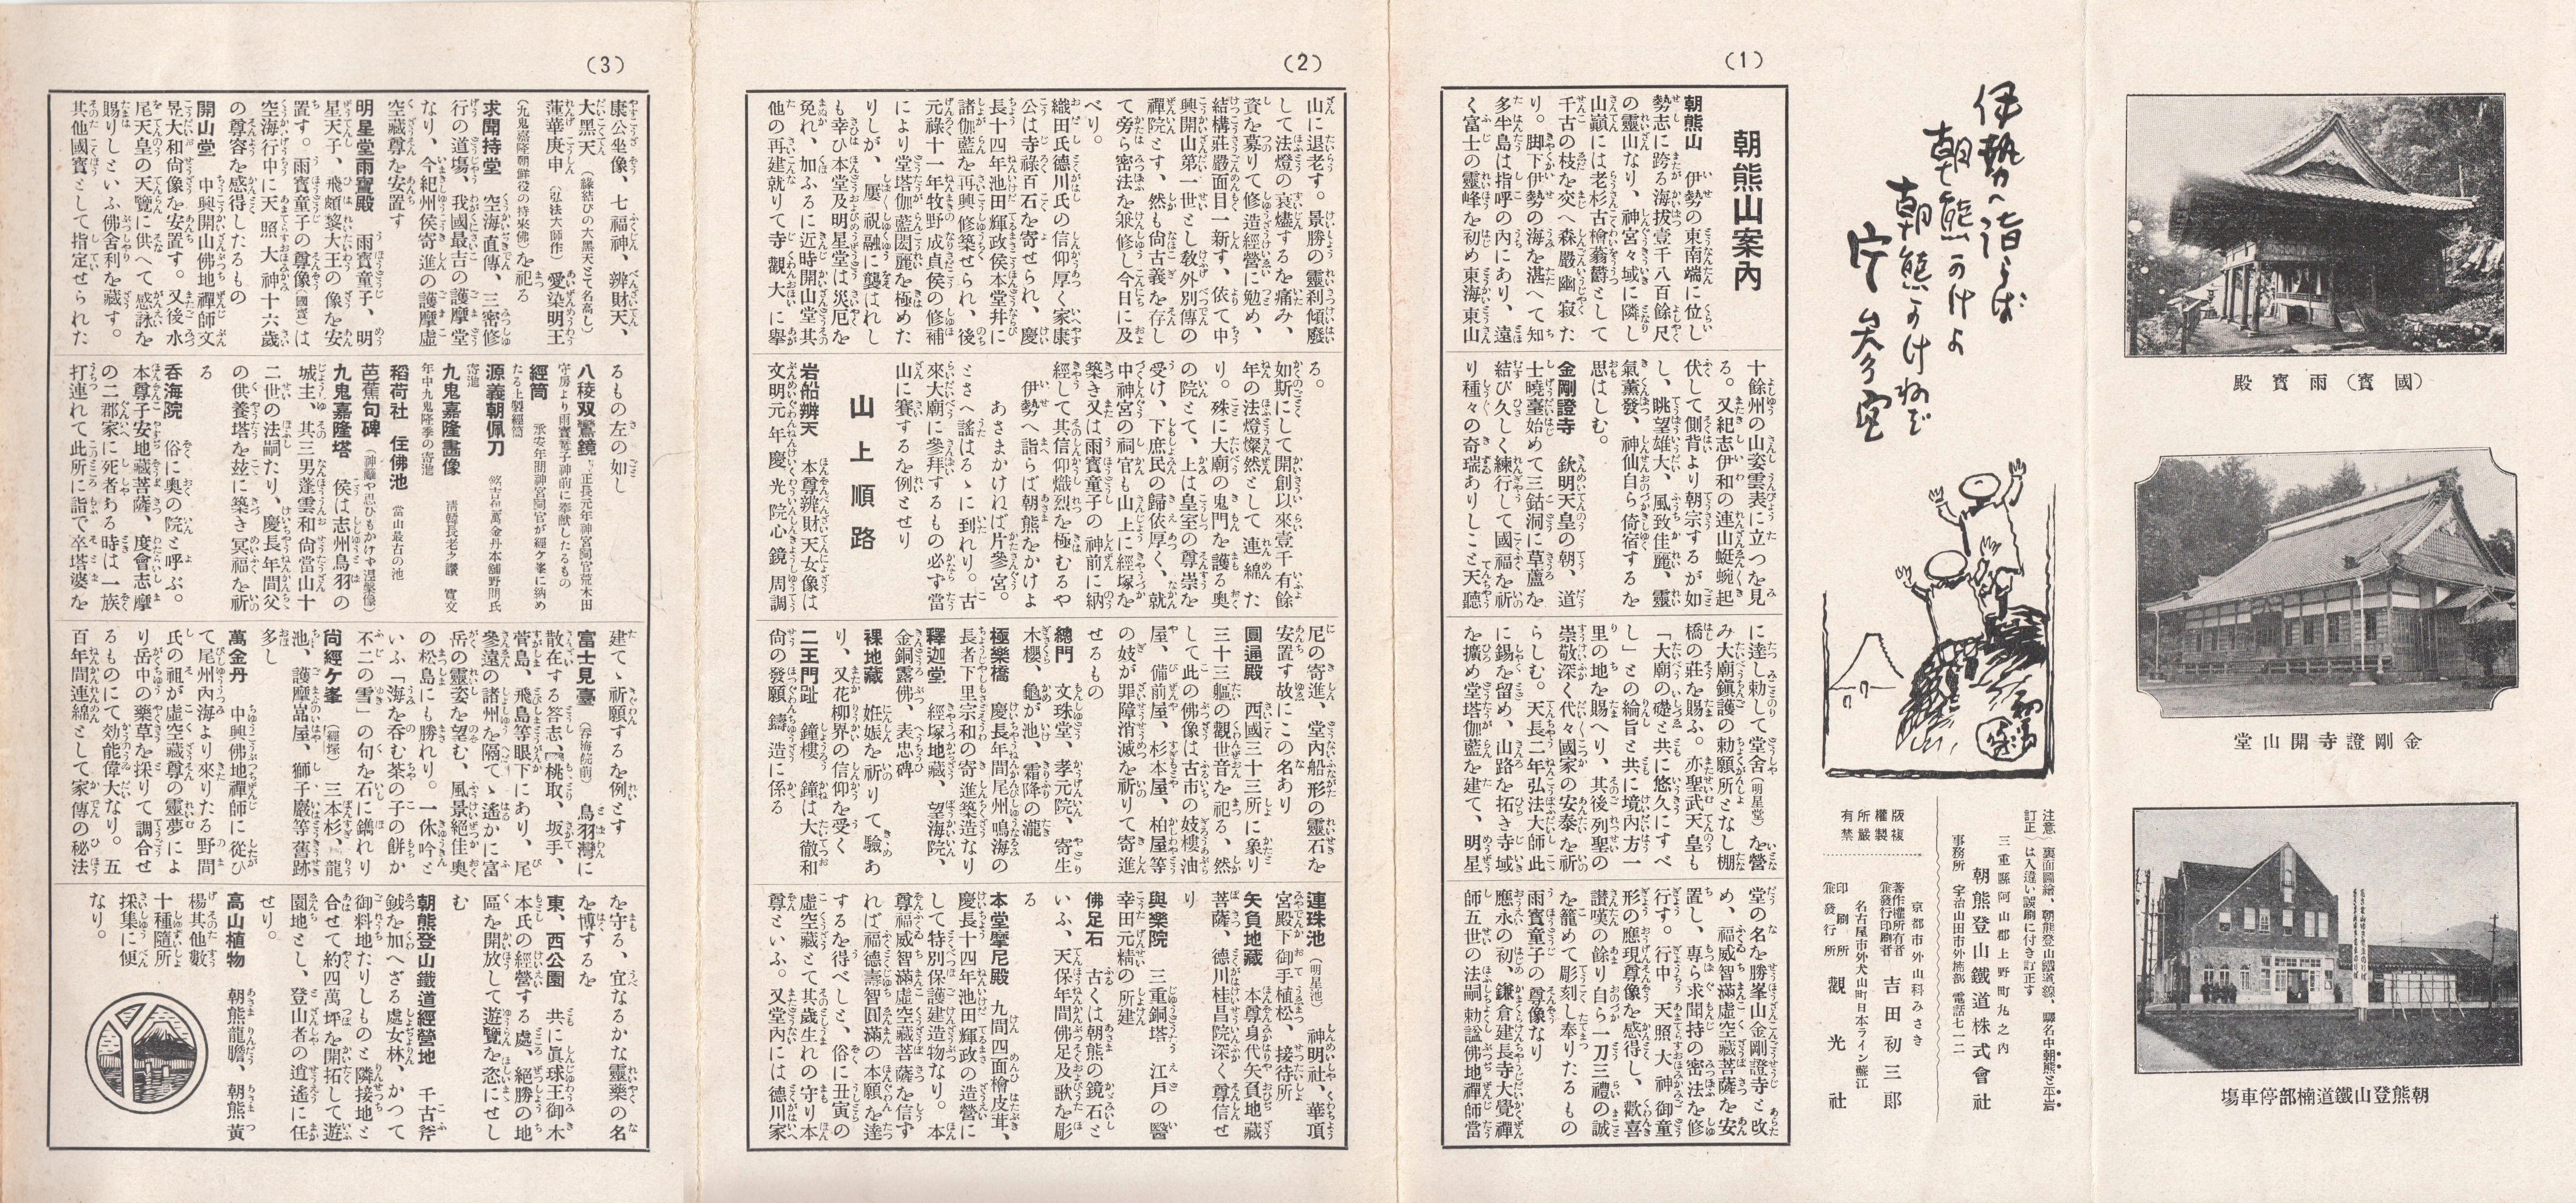 殿寶雨（寶國）
堂山開寺證剛金
塲車停部楠道鐵山登熊朝
伊勢へ詣らば
朝熊かけよ
朝熊かけねば
片參宮
注意　裏面圖繪、朝熊登山鐵道線、驛名中朝熊と平岩
訂正　は入違い誤刷に付き訂正す
三重縣阿山郡上野町丸之内
朝熊登山鐵道株式會社
事務所　宇治山田市外楠部　電話七一二
版權所有
複製嚴禁
京都市外山科みさき
著作權所有者
兼發行印刷者　吉田初三郎
名古屋市外犬山町日本ライン蘇江
印刷所
兼發行所　觀光社
(1)
朝熊山案內
朝熊山　伊勢の東南端に位し
勢志に跨る海拔壹千八百餘尺
の靈山なり、神宮々域に隣し
山巓には老杉古檜蓊欝として
千古の枝を交へ森嚴幽寂た
り。脚下伊勢の海を湛へて知
多半島は指呼の內にあり、遠
く富士の靈峰を初め東海東山
十餘州の山姿雲表に立つを見
る。又紀志伊和の連山蜓蜿起
伏して側背より朝宗するが如
し、眺望雄大、風致佳麗、靈
氣薰發、神仙自ら倚宿するを
思はしむ。
金剛證寺　欽明天皇の朝、道
士曉臺始めて三鈷洞に草蘆を
結び久しく練行して國福を祈
り種々の奇瑞ありしこと天聽
に達し勅して堂舍（明星堂）を營
み大廟鎭護の勅願所となし棚
橋の莊を賜ふ。亦聖武天皇も
「大廟の礎と共に悠久にすべ
し」との綸旨と共に境內方一
里の地を賜へり、其後列聖の
崇敬深く代々國家の安泰を祈
らしむ。天長二年弘法大師此
に錫を留め、山路を拓き寺域
を擴め堂塔伽藍を建て、明星
堂の名を勝峯山金剛證寺と改
め、福威智滿虛空藏菩薩を安
置し、專ら求聞持の密法を修
行す。行中　天照大神御童
形の應現尊像を感得し、歡喜
讃嘆の餘り自ら一刀三禮の誠
を籠めて彫刻し奉りたるもの
雨寶童子の尊像なり
應永の初、鎌倉建長寺大覺禪
師五世の法嗣勅謚佛地禪師當
(2)
山に退老す。景勝の靈刹傾廢
して法燈の衰燼するを痛み、
資を募りて修造經營に勉め、
結構莊嚴面目一新す、依て中
興開山第一世とし敎外別傳の
禪院とす、然も尙古義を存し
て旁ら密法を兼修し今日に及
べり。
織田氏德川氏の信仰厚く家康
公は寺祿百石を寄せられ、慶
長十四年池田輝政侯本堂幷に
諸伽藍を再興修築せられ、後
元祿十一年牧野成貞侯の修補
により堂塔伽藍閎麗を極めた
りしが、屢〻祝融に襲はれし
も幸ひ本堂及明星堂は災厄を
免れ、加ふるに近時開山堂其
他の再建就りて寺觀大に擧
る。
如斯にして開創以來壹千有餘
年の法燈燦然として連綿た
り。殊に大廟の鬼門を護る奧
の院とて、上は皇室の尊崇を
受け、下庶民の歸依厚く、就
中神宮の祠官も山上に經塚を
築き又は雨寶童子の神前に納
經して其信仰熾烈を極むるや
伊勢へ詣らば朝熊をかけよ
あさまかけねば片參宮。
とさへ謠はるゝに到れり。古
來大廟に參拜するもの必ず當
山に賽するを例とせり
山上順路
岩船辨天　本尊辨財天女像は
文明元年慶光院心鏡周調
尼の寄進、堂內船形の靈石を
安置す故にこの名あり
圓通殿　西國三十三所に象り
三十三軀の觀世音を祀る、然
して此の佛像は古市の妓樓油
屋、備前屋、杉本屋、柏屋等
の妓が罪障消滅を祈りて寄進
せるもの
總門　文珠堂、孝元院、寄生
木櫻、龜が池、霧降の瀧
極樂橋　慶長年間尾州鳴海の
長者下里宗和の寄進築造なり
釋迦堂　經塚地藏、望海院、
金銅露佛、表忠碑
裸地藏　姙娠を祈りて驗あ
り、又花柳界の信仰を受く
二王門趾　鐘樓　鐘は大徹和
尙の發願鑄造に係る
連珠池（明星池）　神明社、華頂
宮殿下御手植松、接待所
矢負地藏　本尊身代矢負地藏
菩薩、德川桂昌院深く尊信せ
り
與樂院　三重銅塔　江戶の醫
幸田元精の所建
佛足石　古くは朝熊の鏡石と
いふ、天保年間佛足及歌を彫
る
本堂摩尼殿　九間四面檜皮茸、
慶長十四年池田輝政の造營に
して特別保護建造物なり。本
尊福威智滿虛空藏菩薩を信ず
れば福德壽智圓滿の本願を達
するを得べしと、俗に丑寅の
虛空藏とて其歲生れの守り本
尊といふ。又堂內には德川家
(3)
康公坐像、七福神、辨財天、
大黑天（緣結びの大黑天とて名高し）
蓮華庚申（弘法大師作）愛染明王
（九鬼嘉隆朝鮮役の持來佛）を祀る
求聞持堂　空海直傳、三密修
行の道塲　我國最古の護摩堂
なり、今紀州侯寄進の護摩虛
空藏尊を安置す
明星堂雨寶殿　雨寶童子、明
星天子、飛頗黎大王の像を安
置す。雨寶童子の尊像（國寶）は
空海行中に天照大神十六歲
の尊容を感得したるもの
開山堂　中興開山佛地禪師文
昱大和尙像を安置す。又後水
尾天皇の天覽に供へて感詠を
賜りしといふ佛舍利を藏す。
其他國寶として指定せられた
るもの左の如し
八稜双鸞鏡　正長元年神宮祠官荒木田
守房より雨寶童子神前に奉献したるもの
經筒　承安年間神宮祠官が經ケ峯に納め
たる上製經筒
源義朝佩刀　銘吉和萬金丹本舗野間氏
寄進
九鬼嘉隆畵像　淸韓長老之讚　寬文
年中九鬼隆季の寄進
稻荷社　住佛池　當山最古の池
芭蕉句碑（神籬や思ひもかけず湼槃像）
九鬼嘉隆塔　侯は志州鳥羽の
城主、其三男蓬雲和尙當山十
二世の法嗣たり、慶長年間父
の供養塔を玆に築き冥福を祈
る
呑海院　俗に奧の院と呼ぶ。
本尊子安地藏菩薩、度會志摩
の二郡家に死者ある時は一族
打連れて此所に詣で卒塔婆を
建てゝ祈願するを例とす
富士見臺（呑海院前）　鳥羽灣に
散在する答志、桃取、坂手、
菅島、飛島等眼下にあり、尾
參遠の諸州を隔てゝ遙かに富
岳の靈姿を望む、風景絕佳奧
の松島にも勝れり。一休吟と
いふ「海を呑む茶の子の餅か
不二の雪」の句を石に鐫れり
尙經ケ峯（經塚）　三本杉、龍
池、護摩嵓屋、獅子巖等舊跡
多し
萬金丹　中興佛地禪師に從ひ
て尾州內海より來りたる野間
氏の祖が虛空藏尊の靈夢によ
り岳中の藥草を採りて調合せ
るものにて効能偉大なり。五
百年間連綿として家傳の秘法
を守る、宜なるかな靈藥の名
を博するを
東、西公園　共に眞球王御木
本氏の經營する處、絕勝の地
區を開放して遊覽を恣にせし
む
朝熊登山鐵道經營地　千古斧
鉞を加へざる處女林、かつて
御料地たりしものと隣接地と
合せて約四萬坪を開拓して遊
園地とし、登山者の逍遙に任
せり。
高山植物　朝熊龍膽、朝熊黃
楊其他數
十種隨所
採集に便
なり。